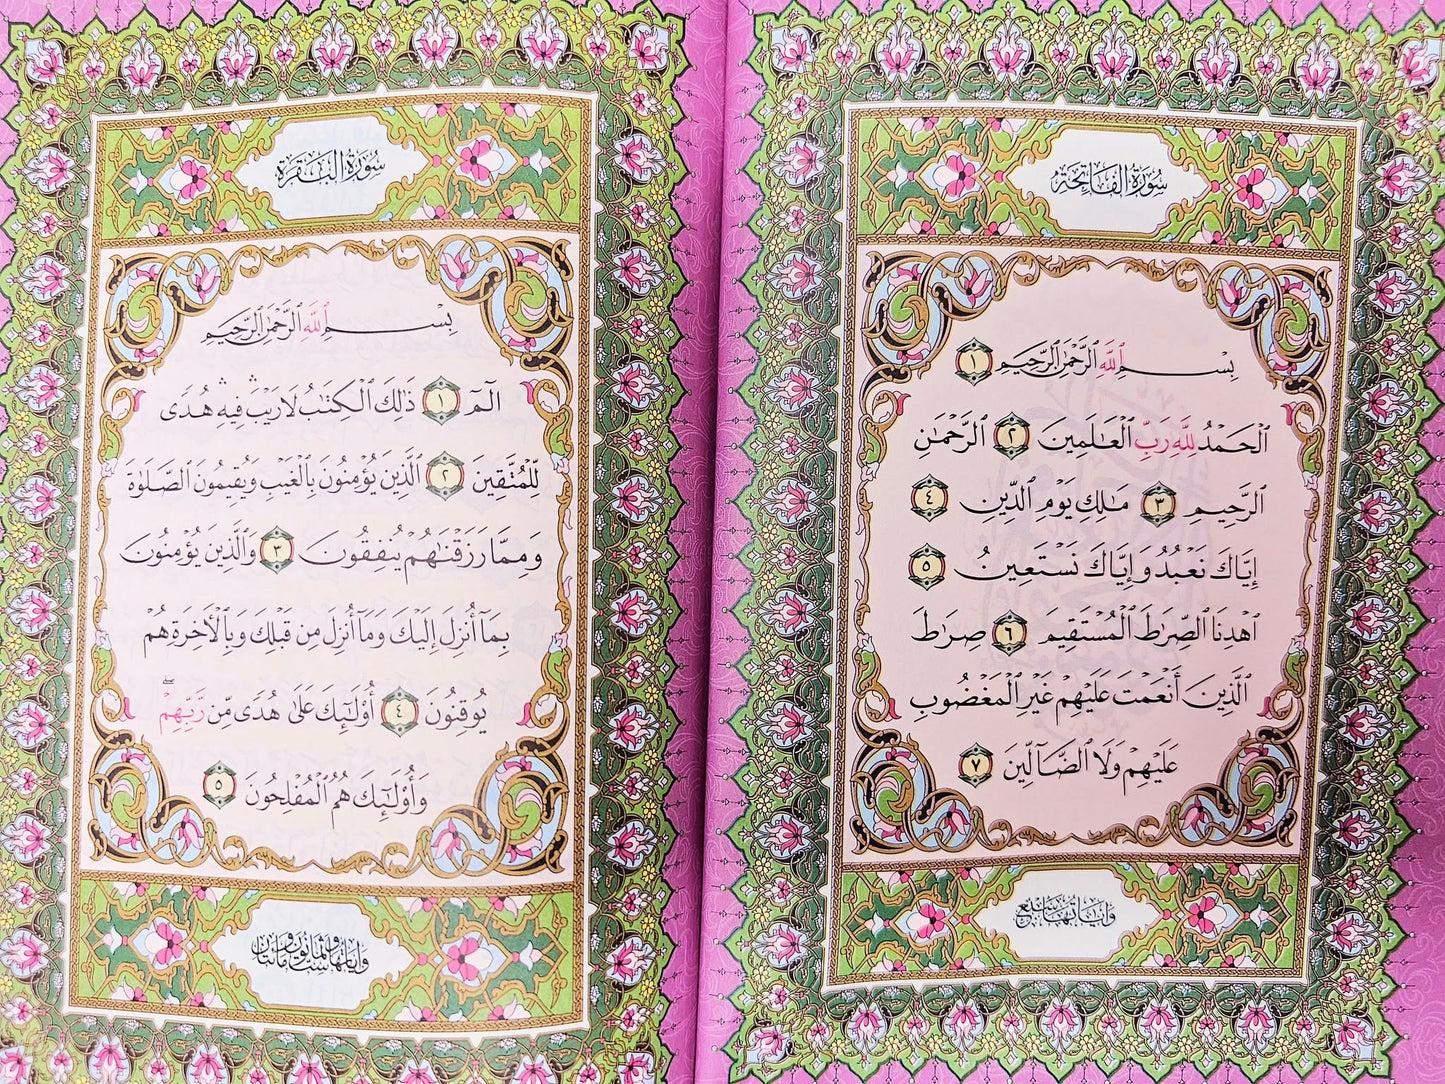 سُورَةُ الْفَاتِحَةِ
بِسْمِ ٱللَّهِ ٱلرَّحْمَٰنِ ٱلرَّحِيمِ ١
ٱلْحَمْدُ لِلَّهِ رَبِّ ٱلْعَٰلَمِينَ ٢ ٱلرَّحْمَٰنِ
ٱلرَّحِيمِ ٣ مَٰلِكِ يَوْمِ ٱلدِّينِ ٤
إِيَّاكَ نَعْبُدُ وَإِيَّاكَ نَسْتَعِينُ ٥
ٱهْدِنَا ٱلصِّرَٰطَ ٱلْمُسْتَقِيمَ ٦ صِرَٰطَ
ٱلَّذِينَ أَنْعَمْتَ عَلَيْهِمْ غَيْرِ ٱلْمَغْضُوبِ
عَلَيْهِمْ وَلَا ٱلضَّآلِّينَ ٧
وَآيَاتُهَا سَبْعٌ
سُورَةُ الْبَقَرَةِ
بِسْمِ ٱللَّهِ ٱلرَّحْمَٰنِ ٱلرَّحِيمِ
الٓمٓ ١ ذَٰلِكَ ٱلْكِتَٰبُ لَا رَيْبَ ۛ فِيهِ ۛ هُدًى
لِّلْمُتَّقِينَ ٢ ٱلَّذِينَ يُؤْمِنُونَ بِٱلْغَيْبِ وَيُقِيمُونَ ٱلصَّلَوٰةَ
وَمِمَّا رَزَقْنَٰهُمْ يُنفِقُونَ ٣ وَٱلَّذِينَ يُؤْمِنُونَ
بِمَآ أُنزِلَ إِلَيْكَ وَمَآ أُنزِلَ مِن قَبْلِكَ وَبِٱلْءَاخِرَةِ هُمْ
يُوقِنُونَ ٤ أُو۟لَٰٓئِكَ عَلَىٰ هُدًى مِّن رَّبِّهِمْ ۖ
وَأُو۟لَٰٓئِكَ هُمُ ٱلْمُفْلِحُونَ ٥
وَآيَاتُهَا سِتٌّ وَثَمَانُونَ وَمِائَتَانِ